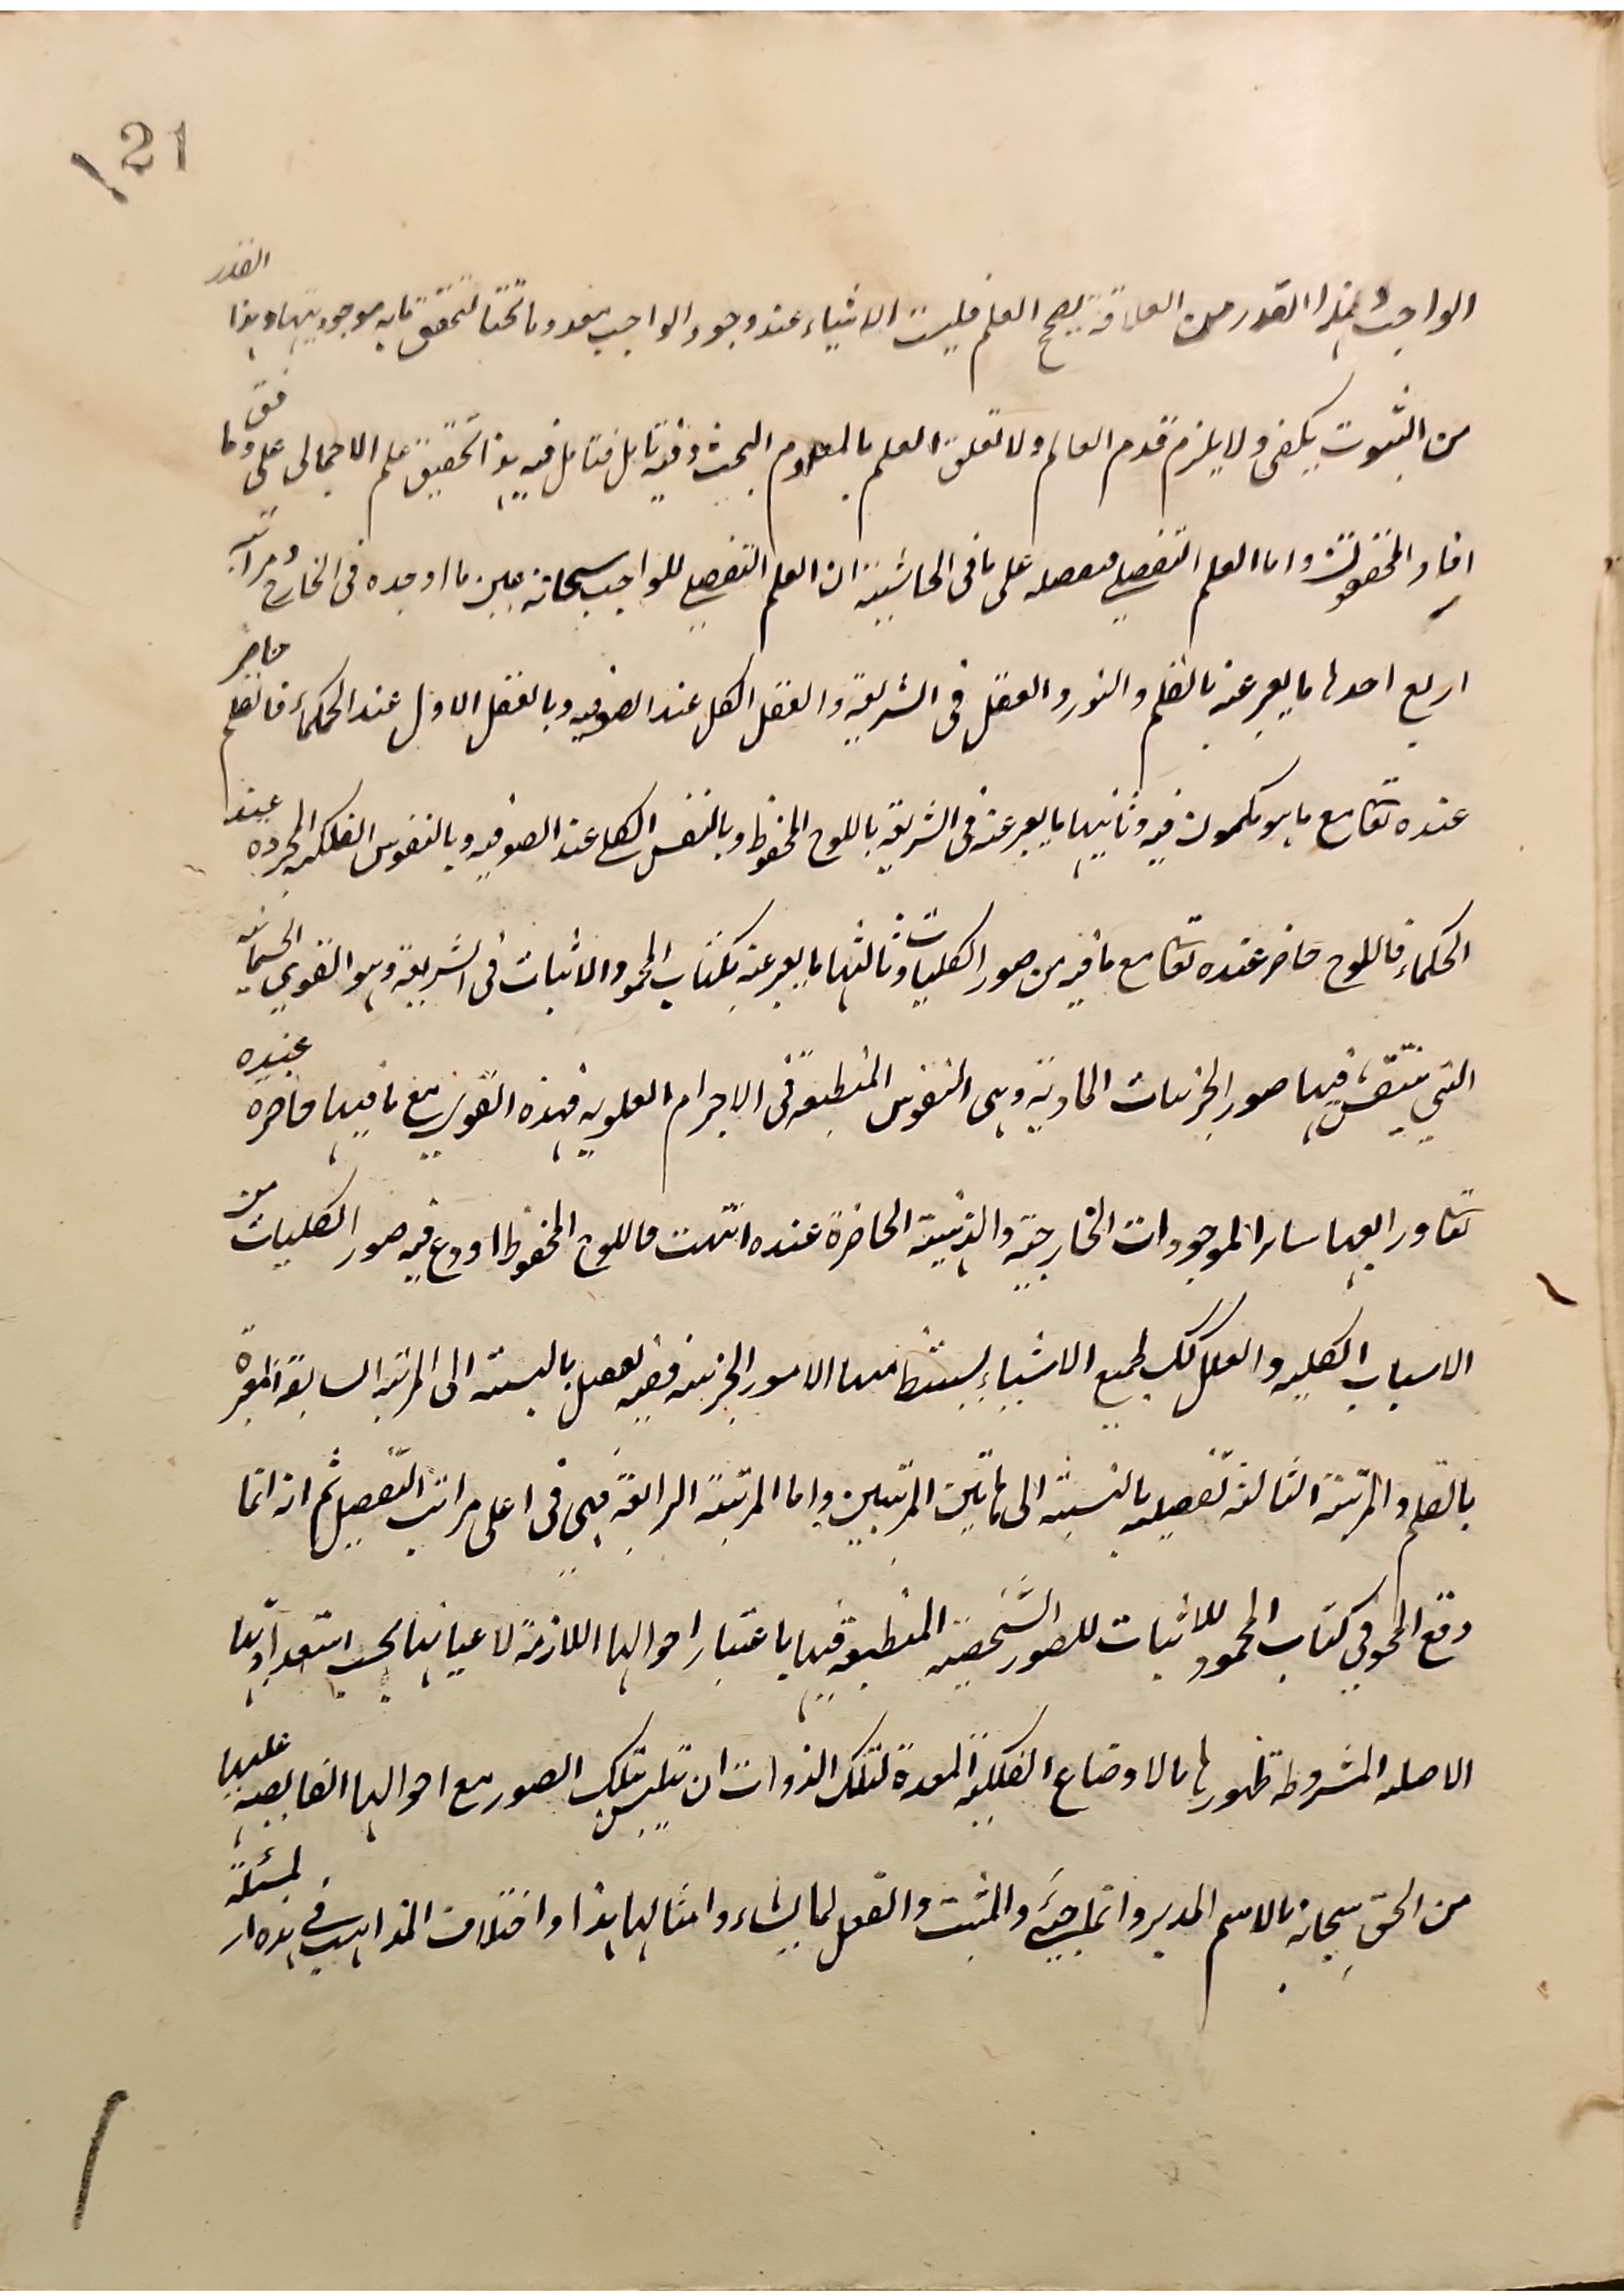 21
الواجب فبهذا القدر من العلاقة يصح العلم فليست الاشياء عند وجود الواجب معدوما محتا لتحقق ما به موجوديتها وهذا القدر
من الثبوت يكفى ولا يلزم قدم العالم ولا تعلق العلم بالمعدوم البحث وفيه تامل فتامل فيه هذا تحقيق علم الاجمالى على وفق ما
افاد المحققون واما العلم التفصيلى فمفصله على ما فى الحاشية ان العلم التفصيلى للواجب سبحانه عين ما اوجده فى الخارج ومراتبه
اربع احدها ما يعبر عنه بالقلم والنور والعقل فى الشريعة والعقل الكل عند الصوفيه وبالعقل الاول عند الحكماء فالقلم حاضر
عنده تعا مع ما هو مكمون فيه وثانيها ما يعبر عنه فى الشريعة باللوح المحفوظ وبالنفس الكلى عند الصوفيه وبالنفوس الفلكيه المجرده عند
الحكماء فاللوح حاضر عنده تعا مع ما فيه من صور الكليات وثالثها ما يعبر عنه بكتاب المحو والاثبات فى الشريعة وهو القوى الجسمانية
التى تنتقش فيها صور الجزئيات المادية وهى النفوس المنطبعة فى الاجرام العلويه فهذه القوى مع ما فيها حاضره عنده
تعا ورابعها سائر الموجودات الخارجية والذهنية الحاضرة عنده انتهت فاللوح المحفوظ اودع فيه صور الكليات من
الاسباب الكليه والعلل كك لجميع الاشياء يستنبط منها الامور الجزئية ففيه تفصيل بالنسبة الى المرتبه السابقة المعبرة
بالقلم والمرتبة الثالثة تفصيليه بالنسبة الى هاتين المرتبتين واما المرتبة الرابعة فهى فى اعلى مراتب التفصيل ثم انه انما
وقع المحو فى كتاب المحو والاثبات للصور الشخصية المنطبعة فيها باعتبار احوالها اللازمة لاعيانها بحسب استعداداتها
الاصليه المشروطه ظهورها بالاوضاع الفلكية المعدة لتلك الذوات ان تتلبس بتلك الصور مع احوالها الفايضه عليها
من الحق سبحانه بالاسم المدبر والماحى والمثبت والفعل لما يشاء وامثالها هذا واختلاف المذاهب فى هذه المسئلة